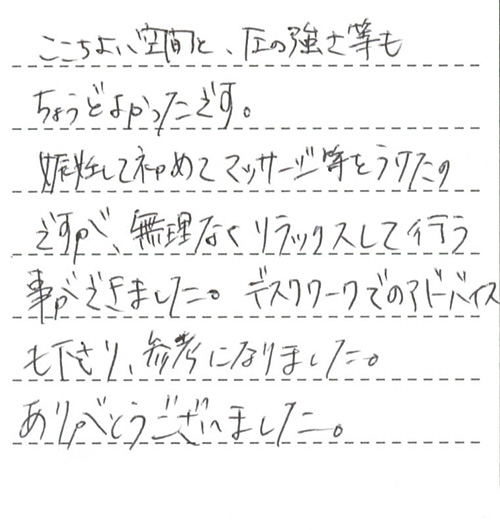 ここちよい空間と、圧の強さ等も
ちょうどよかったです。
妊娠して初めてマッサージ等をうけたの
ですが、無理なくリラックスして行う
事ができました。デスクワークでのアドバイス
も下さり、参考になりました。
ありがとうございました。